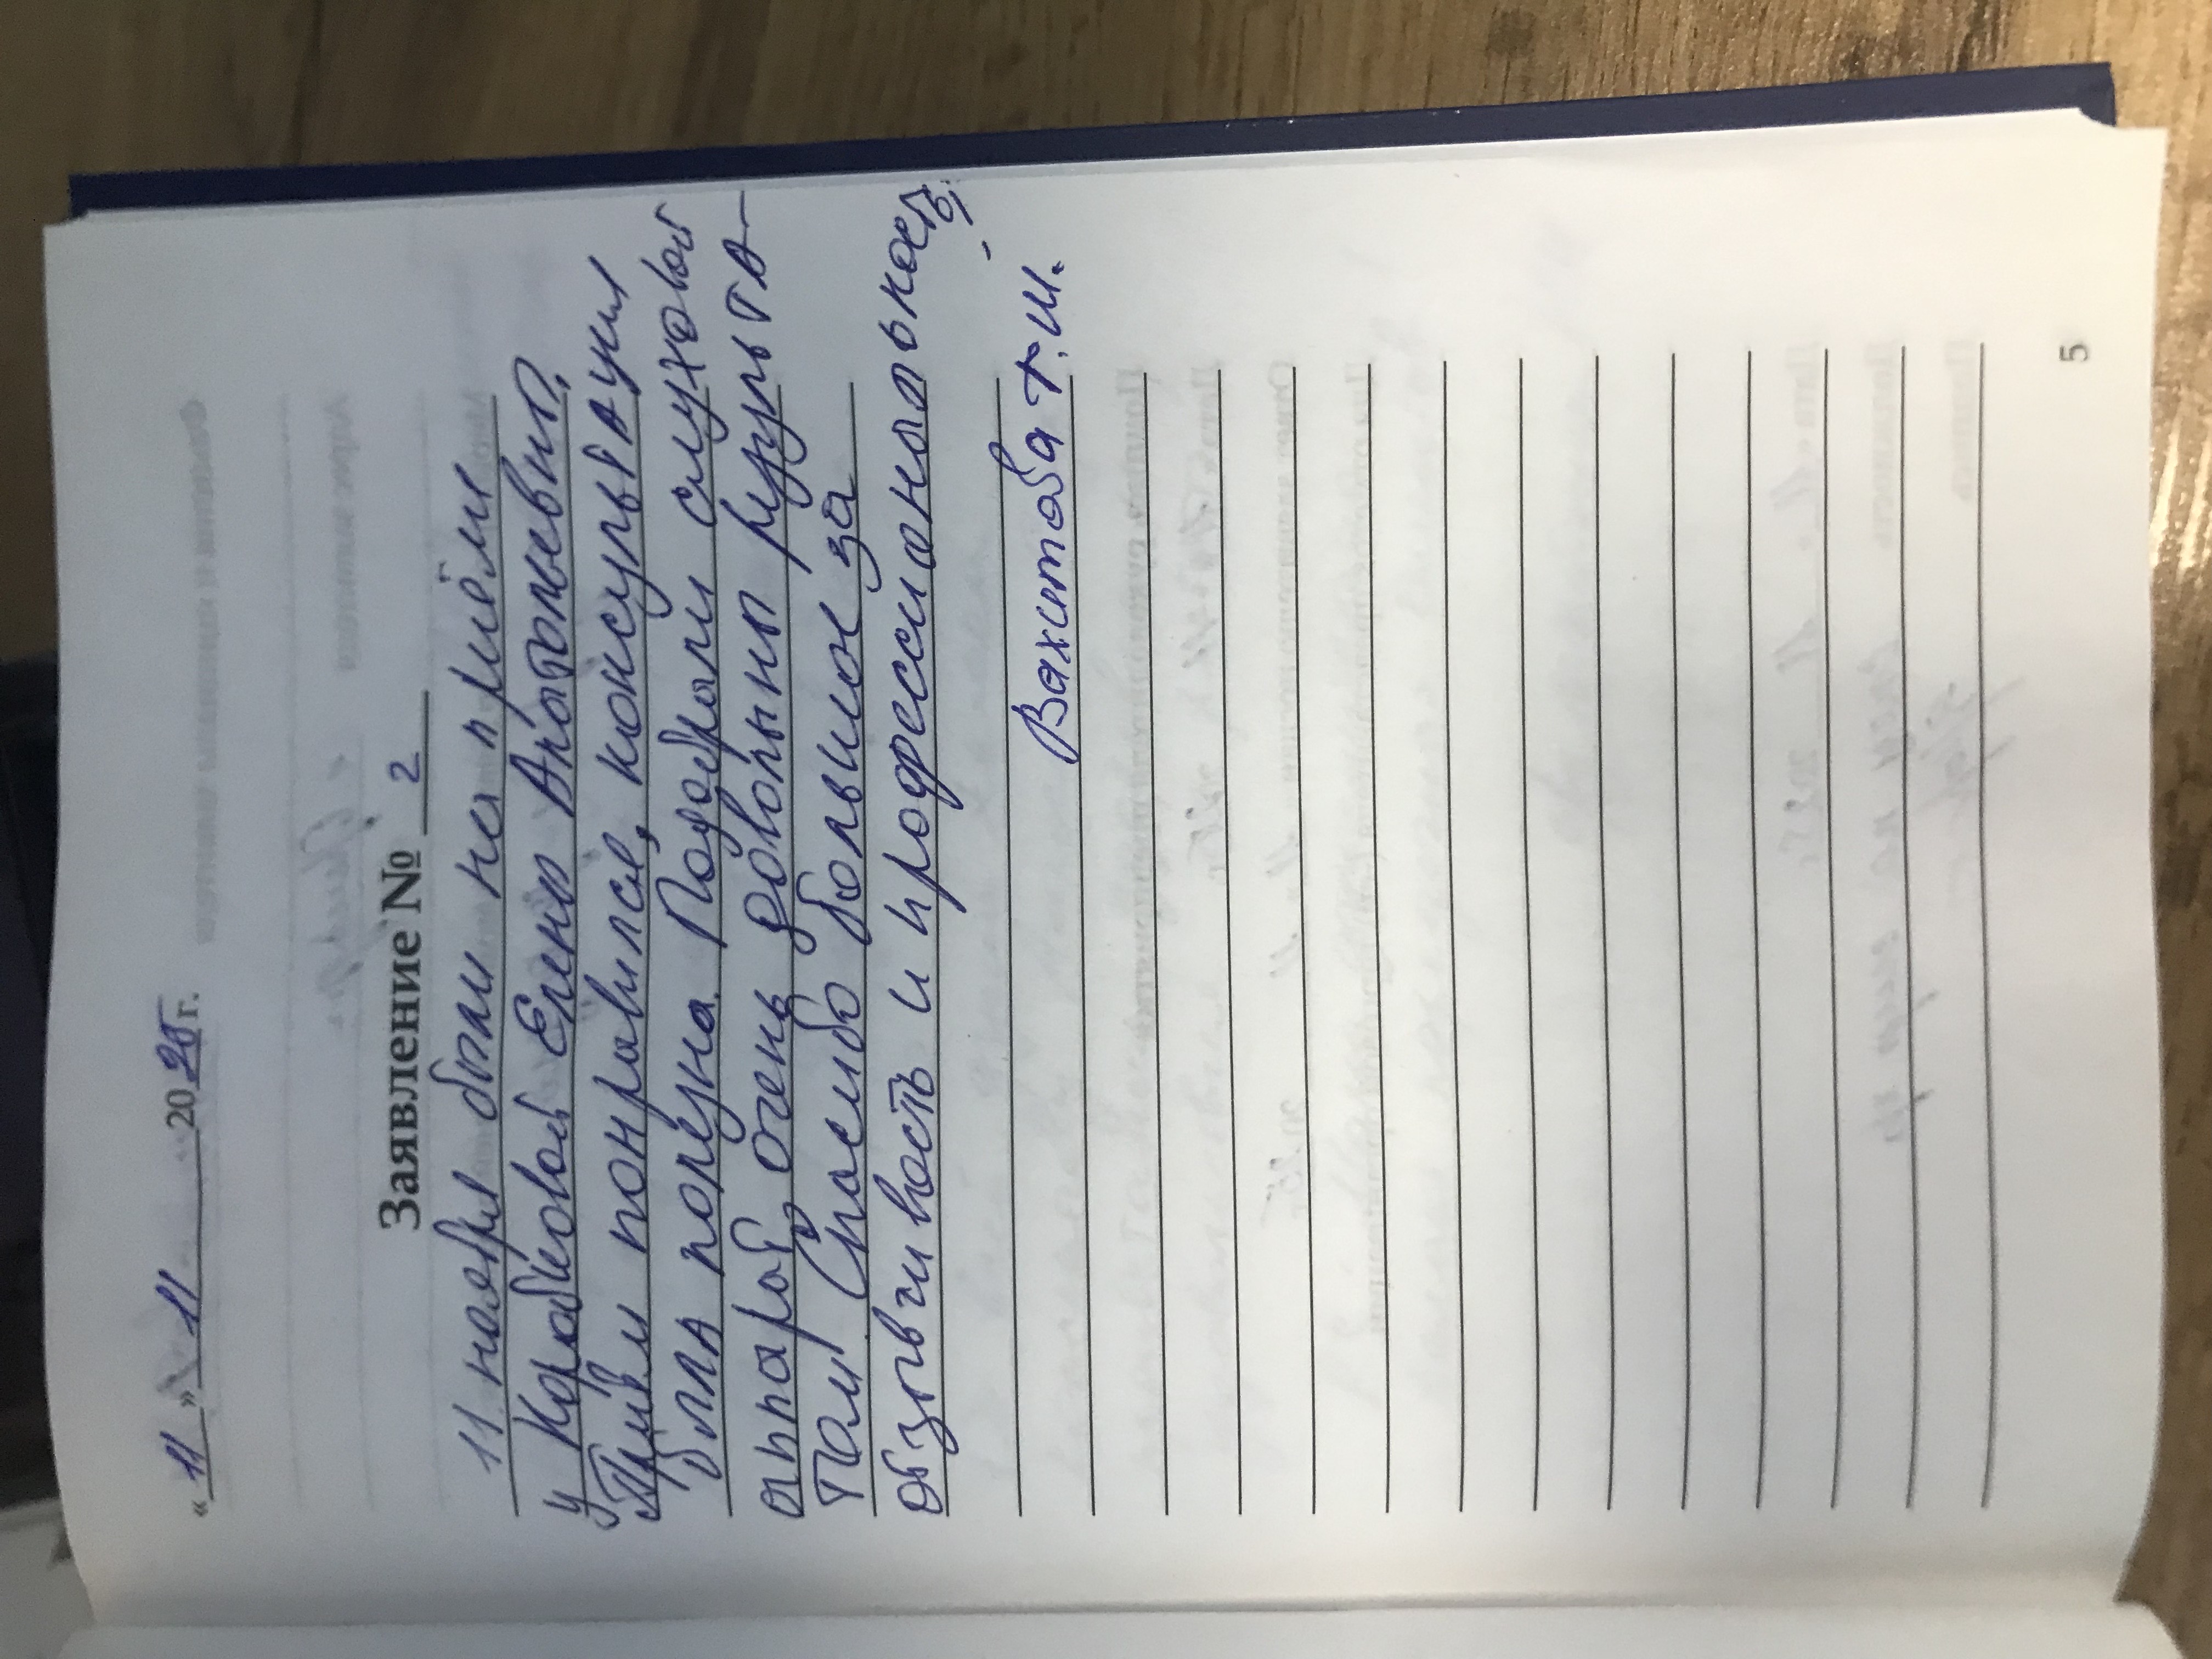 « 11 » 11 20 25 г.
Заявление № 2
11 ноября были на приёме
у Коробковой Елены Анатольевны.
Приём понравился, консультация
была полезна. Подобрали слуховой
аппарат, очень довольны результа-
там Спасибо большое за
отзывчивость и профессиональность.
Вахитова Т.И.
5